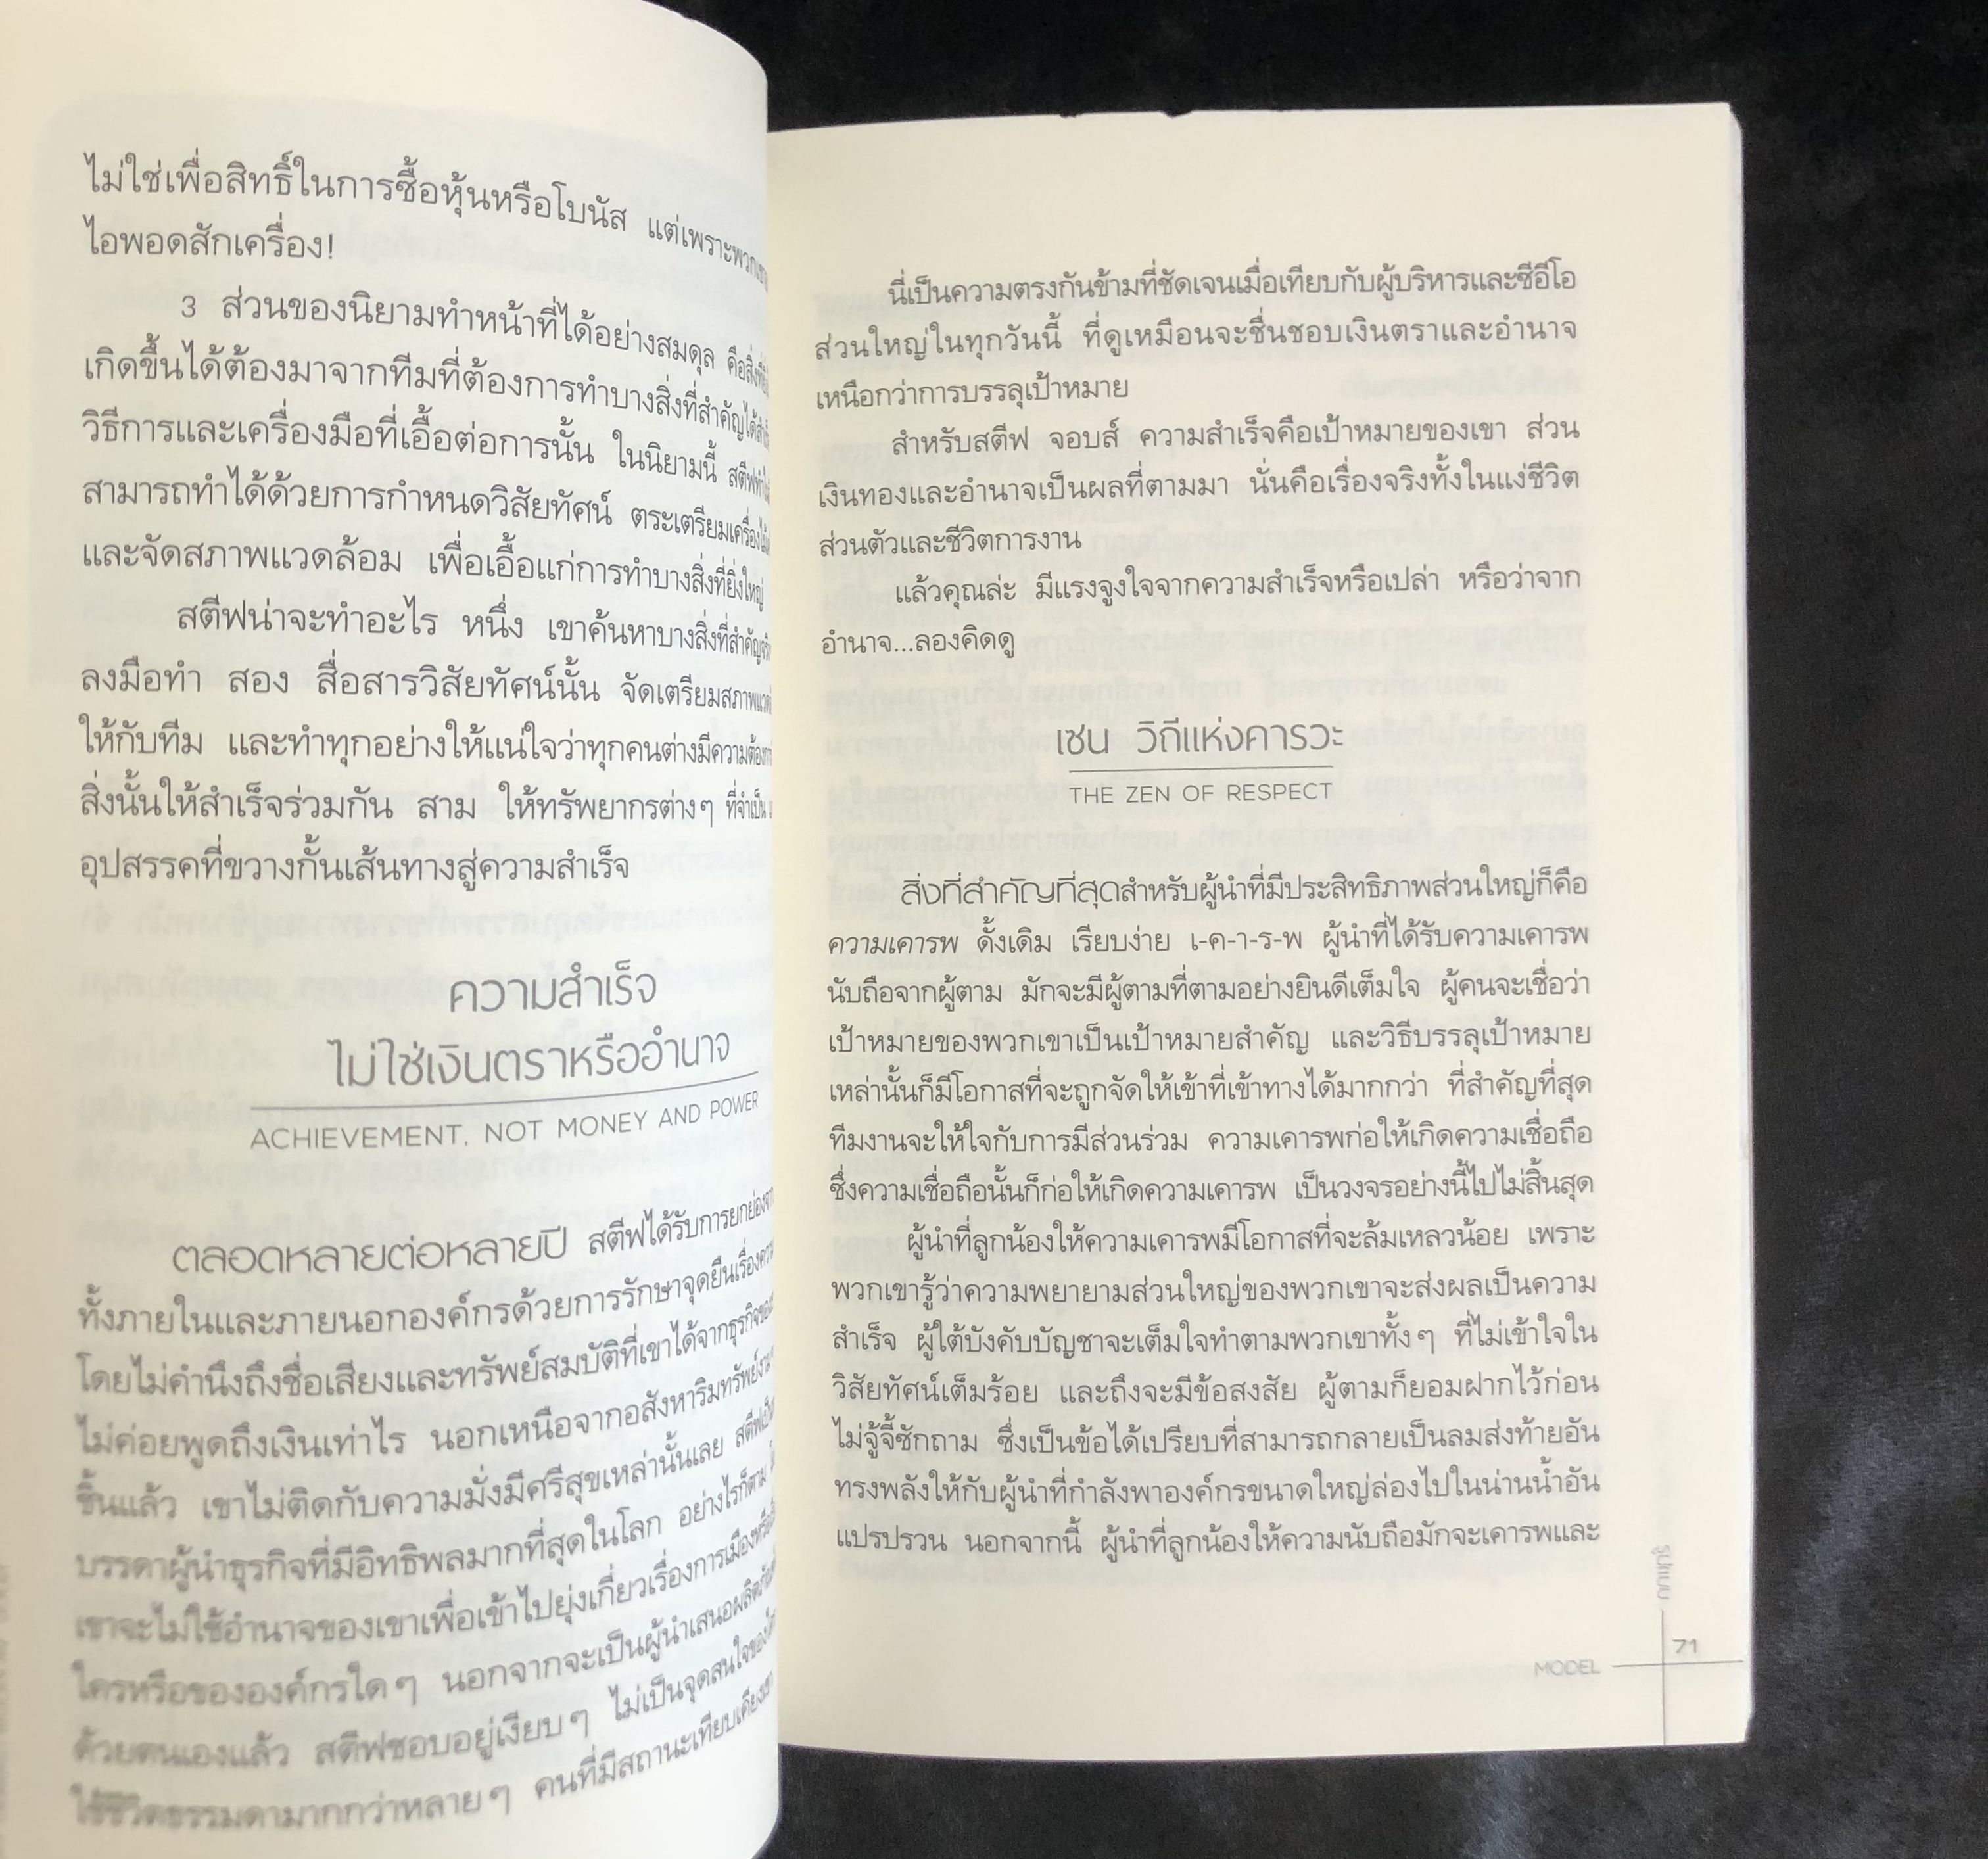 ไม่ใช่เพื่อสิทธิ์ในการซื้อหุ้นหรือโบนัส แต่เพราะพวกเขา
ไอพอดสักเครื่อง!
3 ส่วนของนิยามทำหน้าที่ได้อย่างสมดุล
เกิดขึ้นได้ต้องมาจากทีมที่ต้องการทำบางสิ่งที่สำคัญได้
วิธีการและเครื่องมือที่เอื้อต่อการนั้น ในนิยามนี้
สามารถทำได้ด้วยการกำหนดวิสัยทัศน์ ตระเตรียม
และจัดสภาพแวดล้อม เพื่อเอื้อแก่การทำบางสิ่งที่ยิ่งใหญ่
สตีฟน่าจะทำอะไร หนึ่ง เขาค้นหาบางสิ่งที่สำคัญ
ลงมือทำ สอง สื่อสารวิสัยทัศน์นั้น จัดเตรียม
ให้กับทีม และทำทุกอย่างให้แน่ใจว่าทุกคนต่างมี
สิ่งนั้นให้สำเร็จร่วมกัน สาม ให้ทรัพยากรต่างๆ ที่จำเป็น
อุปสรรคที่ขวางกั้นเส้นทางสู่ความสำเร็จ
ความสำเร็จ
ไม่ใช่เงินตราหรืออำนาจ
ACHIEVEMENT, NOT MONEY AND POWER
ตลอดหลายต่อหลายปี สตีฟได้รับการยกย่อง
ทั้งภายในและภายนอกองค์กรด้วยการรักษาจุดยืนเรื่อง
โดยไม่คำนึงถึงชื่อเสียงและทรัพย์สมบัติที่เขาได้จากธุรกิจ
ไม่ค่อยพูดถึงเงินเท่าไร นอกเหนือจากอสังหาริมทรัพย์
ชิ้นแล้ว เขาไม่ติดกับความมั่งมีศรีสุขเหล่านั้นเลย
บรรดาผู้นำธุรกิจที่มีอิทธิพลมากที่สุดในโลก อย่างไรก็ตาม
เขาจะไม่ใช้อำนาจของเขาเพื่อเข้าไปยุ่งเกี่ยวเรื่องการเมือง
ใครหรือขององค์กรใดๆ นอกจากจะเป็นผู้นำเสนอ
ด้วยตนเองแล้ว สตีฟชอบอยู่เงียบๆ ไม่เป็นจุดสนใจ
ใช้ชีวิตธรรมดามากกว่าหลายๆ คนที่มีสถานะเทียบเคียง
นี่เป็นความตรงกันข้ามที่ชัดเจนเมื่อเทียบกับผู้บริหารและซีอีโอ
ส่วนใหญ่ในทุกวันนี้ ที่ดูเหมือนจะชื่นชอบเงินตราและอำนาจ
เหนือกว่าการบรรลุเป้าหมาย
สำหรับสตีฟ จอบส์ ความสำเร็จคือเป้าหมายของเขา ส่วน
เงินทองและอำนาจเป็นผลที่ตามมา นั่นคือเรื่องจริงทั้งในแง่ชีวิต
ส่วนตัวและชีวิตการงาน
แล้วคุณล่ะ มีแรงจูงใจจากความสำเร็จหรือเปล่า หรือว่าจาก
อำนาจ...ลองคิดดู
เซน วิถีแห่งคารวะ
THE ZEN OF RESPECT
สิ่งที่สำคัญที่สุดสำหรับผู้นำที่มีประสิทธิภาพส่วนใหญ่ก็คือ
ความเคารพ ดั้งเดิม เรียบง่าย เ-ค-า-ร-พ ผู้นำที่ได้รับความเคารพ
นับถือจากผู้ตาม มักจะมีผู้ตามที่ตามอย่างยินดีเต็มใจ ผู้คนจะเชื่อว่า
เป้าหมายของพวกเขาเป็นเป้าหมายสำคัญ และวิธีบรรลุเป้าหมาย
เหล่านั้นก็มีโอกาสที่จะถูกจัดให้เข้าที่เข้าทางได้มากกว่า ที่สำคัญที่สุด
ทีมงานจะให้ใจกับการมีส่วนร่วม ความเคารพก่อให้เกิดความเชื่อถือ
ซึ่งความเชื่อถือนั้นก็ก่อให้เกิดความเคารพ เป็นวงจรอย่างนี้ไปไม่สิ้นสุด
ผู้นำที่ลูกน้องให้ความเคารพมีโอกาสที่จะล้มเหลวน้อย เพราะ
พวกเขารู้ว่าความพยายามส่วนใหญ่ของพวกเขาจะส่งผลเป็นความ
สำเร็จ ผู้ใต้บังคับบัญชาจะเต็มใจทำตามพวกเขาทั้งๆ ที่ไม่เข้าใจใน
วิสัยทัศน์เต็มร้อย และถึงจะมีข้อสงสัย ผู้ตามก็ยอมฝากไว้ก่อน
ไม่จู้จี้ซักถาม ซึ่งเป็นข้อได้เปรียบที่สามารถกลายเป็นลมส่งท้ายอัน
ทรงพลังให้กับผู้นำที่กำลังพาองค์กรขนาดใหญ่ล่องไปในน่านน้ำอัน
แปรปรวน นอกจากนี้ ผู้นำที่ลูกน้องให้ความนับถือมักจะเคารพและ
รูปแบบ
71
MODEL